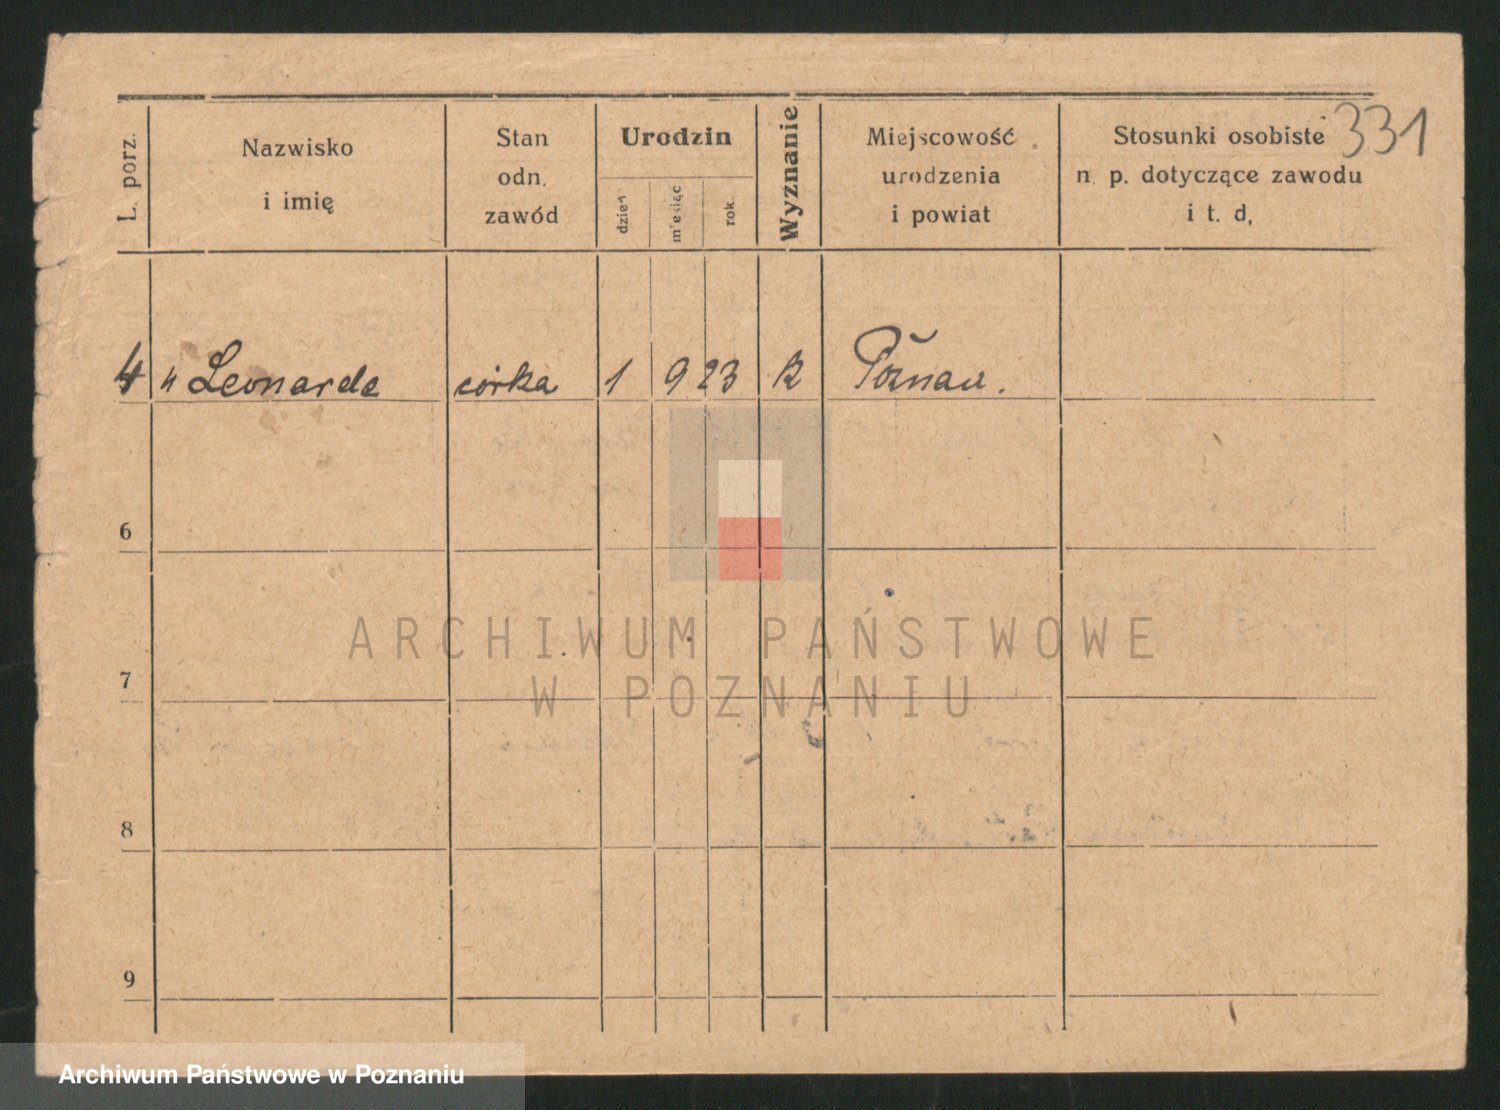 331
L. porz.
Nazwisko
i imię
Stan
odn.
zawód
Urodzin
dzień
miesiąc
rok.
Wyznanie
Miejscowość
urodzenia
i powiat
Stosunki osobiste
n. p. dotyczące zawodu
i t. d,
4 " Leonarda córka 1 9 23 R Poznań.
6
7
8
9
ARCHIWUM PAŃSTWOWE
W POZNANIU
Archiwum Państwowe w Poznaniu